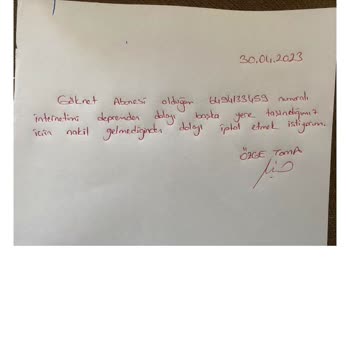 30.04.2023
Göknet Abonesi olduğum 6494133459 numaralı
internetimi depremden dolayı başka yere taşındığımız
için nakil gelmediğinden dolayı iptal etmek istiyorum.
ÖZGE TOMA